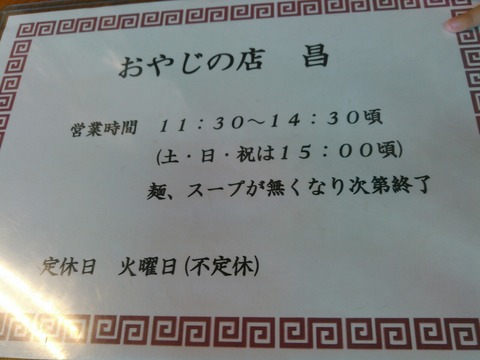 おやじの店　昌
営業時間　１１：３０～１４：３０頃
(土・日・祝は１５：００頃)
麺、スープが無くなり次第終了
定休日　火曜日(不定休)